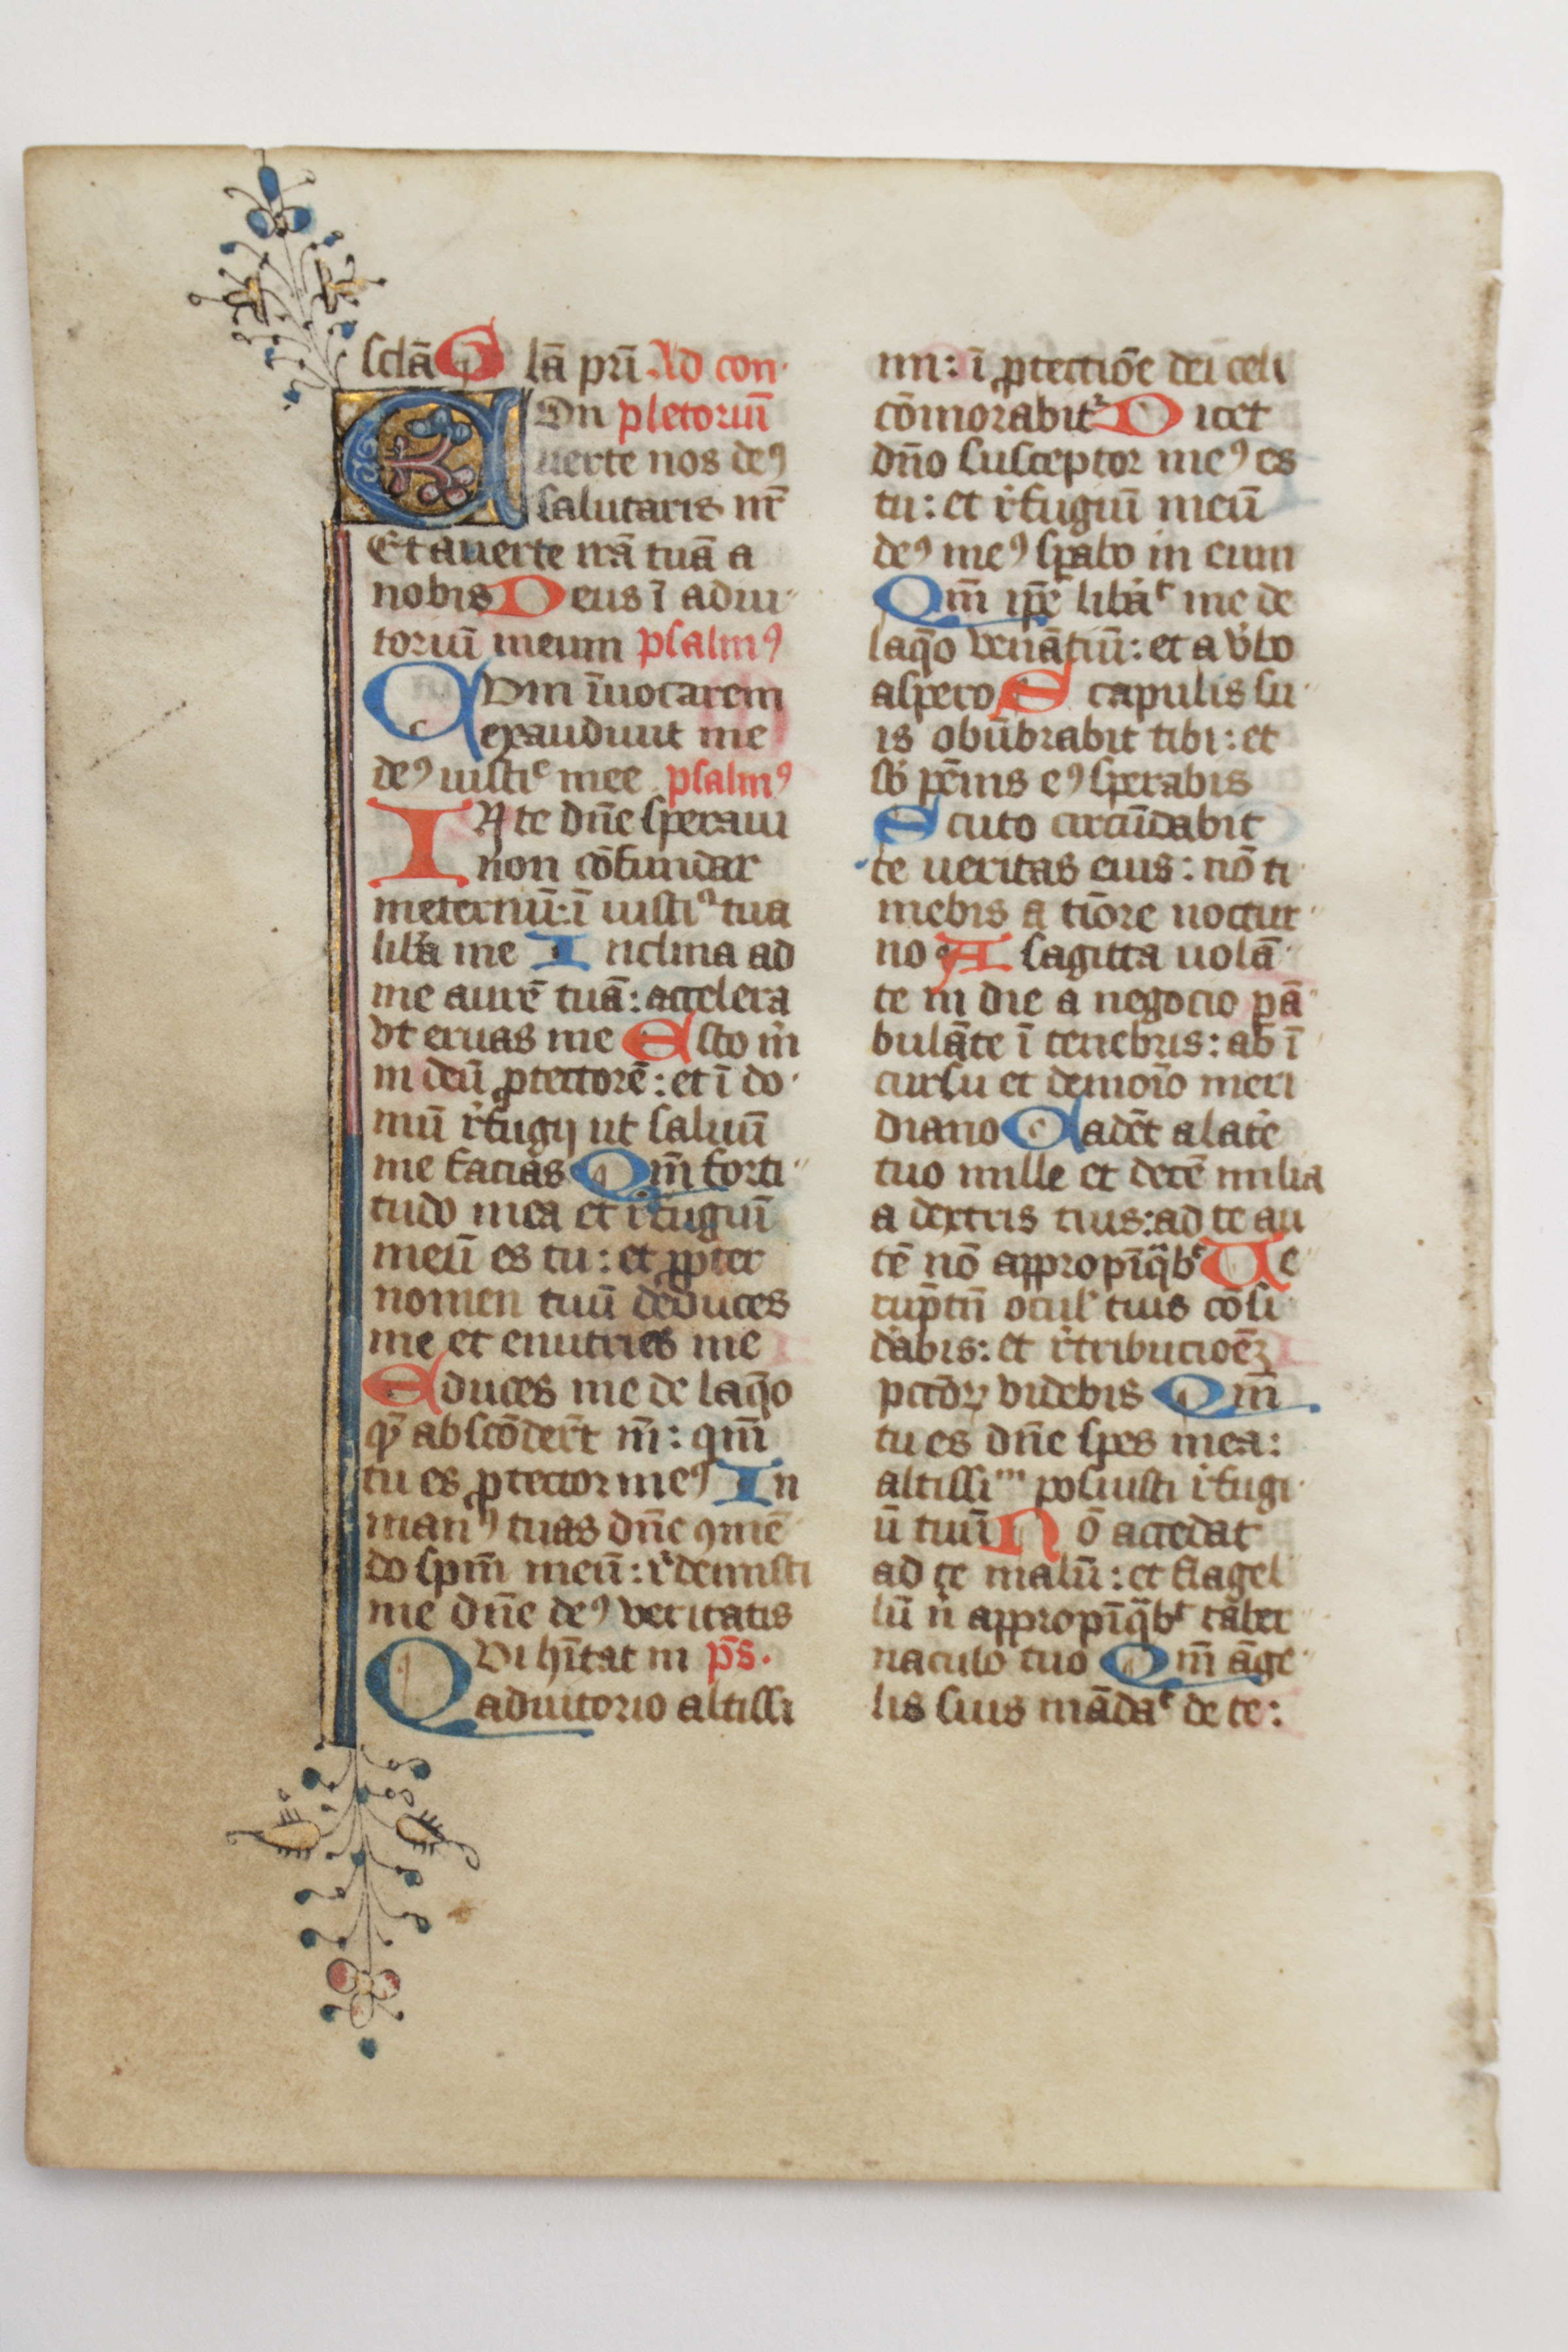 sclā G lā pri Ad con
COn pletoriū
uerte nos deꝰ
salutaris nr̄
Et auerte irā tuā a
nobis Deus ī adiu
toriū meum psalmꝰ
CVm īuocarem
exaudiuit me
deꝰ iusticͤ mee psalmꝰ
IN te dn̄e speraui
non cōfundar
ineternū: ī iustiᵃ tua
liba me Inclina ad
me aurē tuā: accelera
vt eruas me Esto m̄
in deū ꝓtectorē: et ī do
mū rͤfugij ut saluū
me facias Qm̄ forti
tudo mea et rͤfugiū
meū es tu: et ꝓpter
nomen tuū deduces
me et enutries me
Educes me de laq̄o
qͥ̄ abscōder̄t m̄: qm̄
tu es ꝓtector meꝰ In
manꝰ tuas dn̄e ꝯmē
do spm̄ meū: rͤdemisti
me dn̄e deꝰ veritatis
QVi hītat in ps̄.
adiutorio altissi
mi: ī ꝓtectiōe dei celi
cōmorabitᷣ Dicet
dn̄o susceptor meꝰ es
tu: et rͤfugiū meū
deꝰ meꝰ spabo in eum
Qm̄ ip̄e libaᵗ me de
laq̄o venātiū: et a vͤbo
aspero Scapulis su
is obūbrabit tibi: et
sb pēnis eꝰ sperabis
Scuto circūdabit
te ueritas eius: nō ti
mebis a tiōre noctur
no A sagitta uolā
te in die a negocio pā
bulāte ī tenebris: ab ī
cursu et demoīo meri
diano Cadēt a latͤe
tuo mille et decē milia
a dextris tuis: ad te au
tē nō appropīq̄bᵗ Ue
rūptn̄ oculꝭ tuis cōsi
dabis: et rͤtribucioēꝫ
pcc̄dꝝ videbis Qm̄
tu es dn̄e spes mea:
altissiᵐ posuisti rͤfugi
ū tuū Nō accedat
ad te malū: et flagel
lū n̄ appropīq̄bᵗ taber
naculo tuo Qm̄ āge
lis suis mādaᵗ de te: